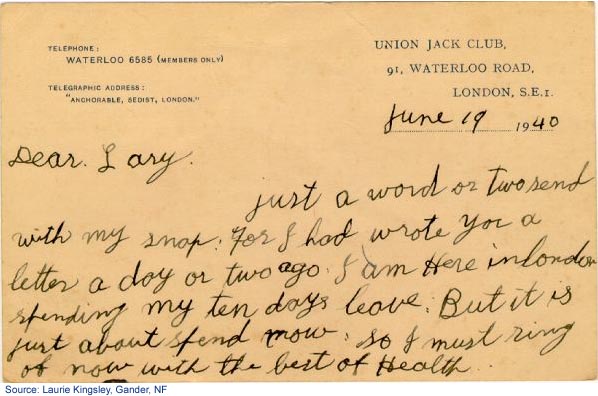 TELEPHONE:
WATERLOO 6585 (MEMBERS ONLY)
TELEGRAPHIC ADDRESS:
"ANCHORABLE, SEDIST, LONDON."
UNION JACK CLUB,
91, WATERLOO ROAD,
LONDON, S.E.1.
June 19 1940
Dear. Lary.
just a word or two send
with my snap. For I had wrote you a
letter a day or two ago. I am Here in london
spending my ten days leave. But it is
just about spend now. so I must ring
of now with the best of Health..
Source: Laurie Kingsley, Gander, NF